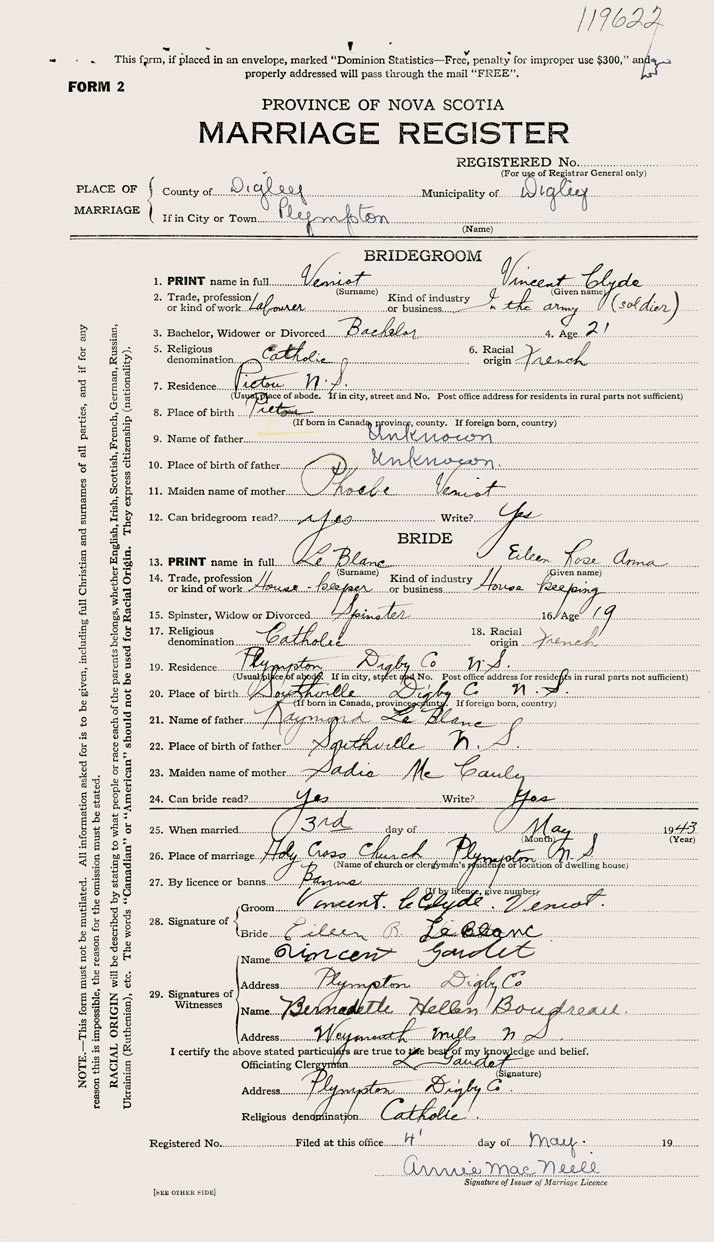 119622
This form, if placed in an envelope, marked "Dominion Statistics—Free, penalty for improper use $300," and
properly addressed will pass through the mail "FREE".
FORM 2
PROVINCE OF NOVA SCOTIA
MARRIAGE REGISTER
REGISTERED No.
(For use of Registrar General only)
PLACE OF MARRIAGE
County of Digby Municipality of Digby
If in City or Town Plympton
(Name)
BRIDEGROOM
1. PRINT name in full Veniot Vincent Clyde
(Surname) (Given name)
2. Trade, profession or kind of work Labourer Kind of industry or business In the army (soldier)
3. Bachelor, Widower or Divorced Bachelor 4. Age 21
5. Religious denomination Catholic 6. Racial origin French
7. Residence Pictou N.S.
(Usual place of abode. If in city, street and No. Post office address for residents in rural parts not sufficient)
8. Place of birth Pictou
(If born in Canada, province, county. If foreign born, country)
9. Name of father Unknown
10. Place of birth of father Unknown.
11. Maiden name of mother Phoebe Veniot
12. Can bridegroom read? yes Write? Yes
BRIDE
13. PRINT name in full Le Blanc Eileen Rose Anna
(Surname) (Given name)
14. Trade, profession or kind of work House-keeper Kind of industry or business House keeping
15. Spinster, Widow or Divorced Spinster 16. Age 19
17. Religious denomination Catholic 18. Racial origin French
19. Residence Plympton Digby Co N.S.
(Usual place of abode. If in city, street and No. Post office address for residents in rural parts not sufficient)
20. Place of birth Southville Digby Co N.S.
(If born in Canada, province, county. If foreign born, country)
21. Name of father Raymond Le Blanc
22. Place of birth of father Southville N.S.
23. Maiden name of mother Sadie Mc Cauly
24. Can bride read? Yes Write? Yes
25. When married 3rd day of May 1943
(Month) (Year)
26. Place of marriage Holy Cross Church Plympton N.S.
(Name of church or clergyman's residence or location of dwelling house)
27. By licence or banns Banns
(If by licence, give number)
28. Signature of Groom Vincent. Clyde. Veniot.
Bride Eileen R. LeBlanc
29. Signatures of Witnesses
Name Vincent Gaudet
Address Plympton Digby Co
Name Bernadette Hellen Boudreau.
Address Weymouth Mills N S.
I certify the above stated particulars are true to the best of my knowledge and belief.
Officiating Clergyman L. Gaudet
(Signature)
Address Plympton Digby Co.
Religious denomination Catholic.
Registered No. Filed at this office 4 day of May. 19
Annie MacNeill
Signature of Issuer of Marriage Licence
[SEE OTHER SIDE]
NOTE.—This form must not be mutilated. All information asked for is to be given, including full Christian and surnames of all parties, and if for any
reason this is impossible, the reason for the omission must be stated.
RACIAL ORIGIN will be described by stating to what people or race each of the parents belongs, whether English, Irish, Scottish, French, German, Russian,
Ukrainian (Ruthenian), etc. The words "Canadian" or "American" should not be used for Racial Origin. They express citizenship (nationality).